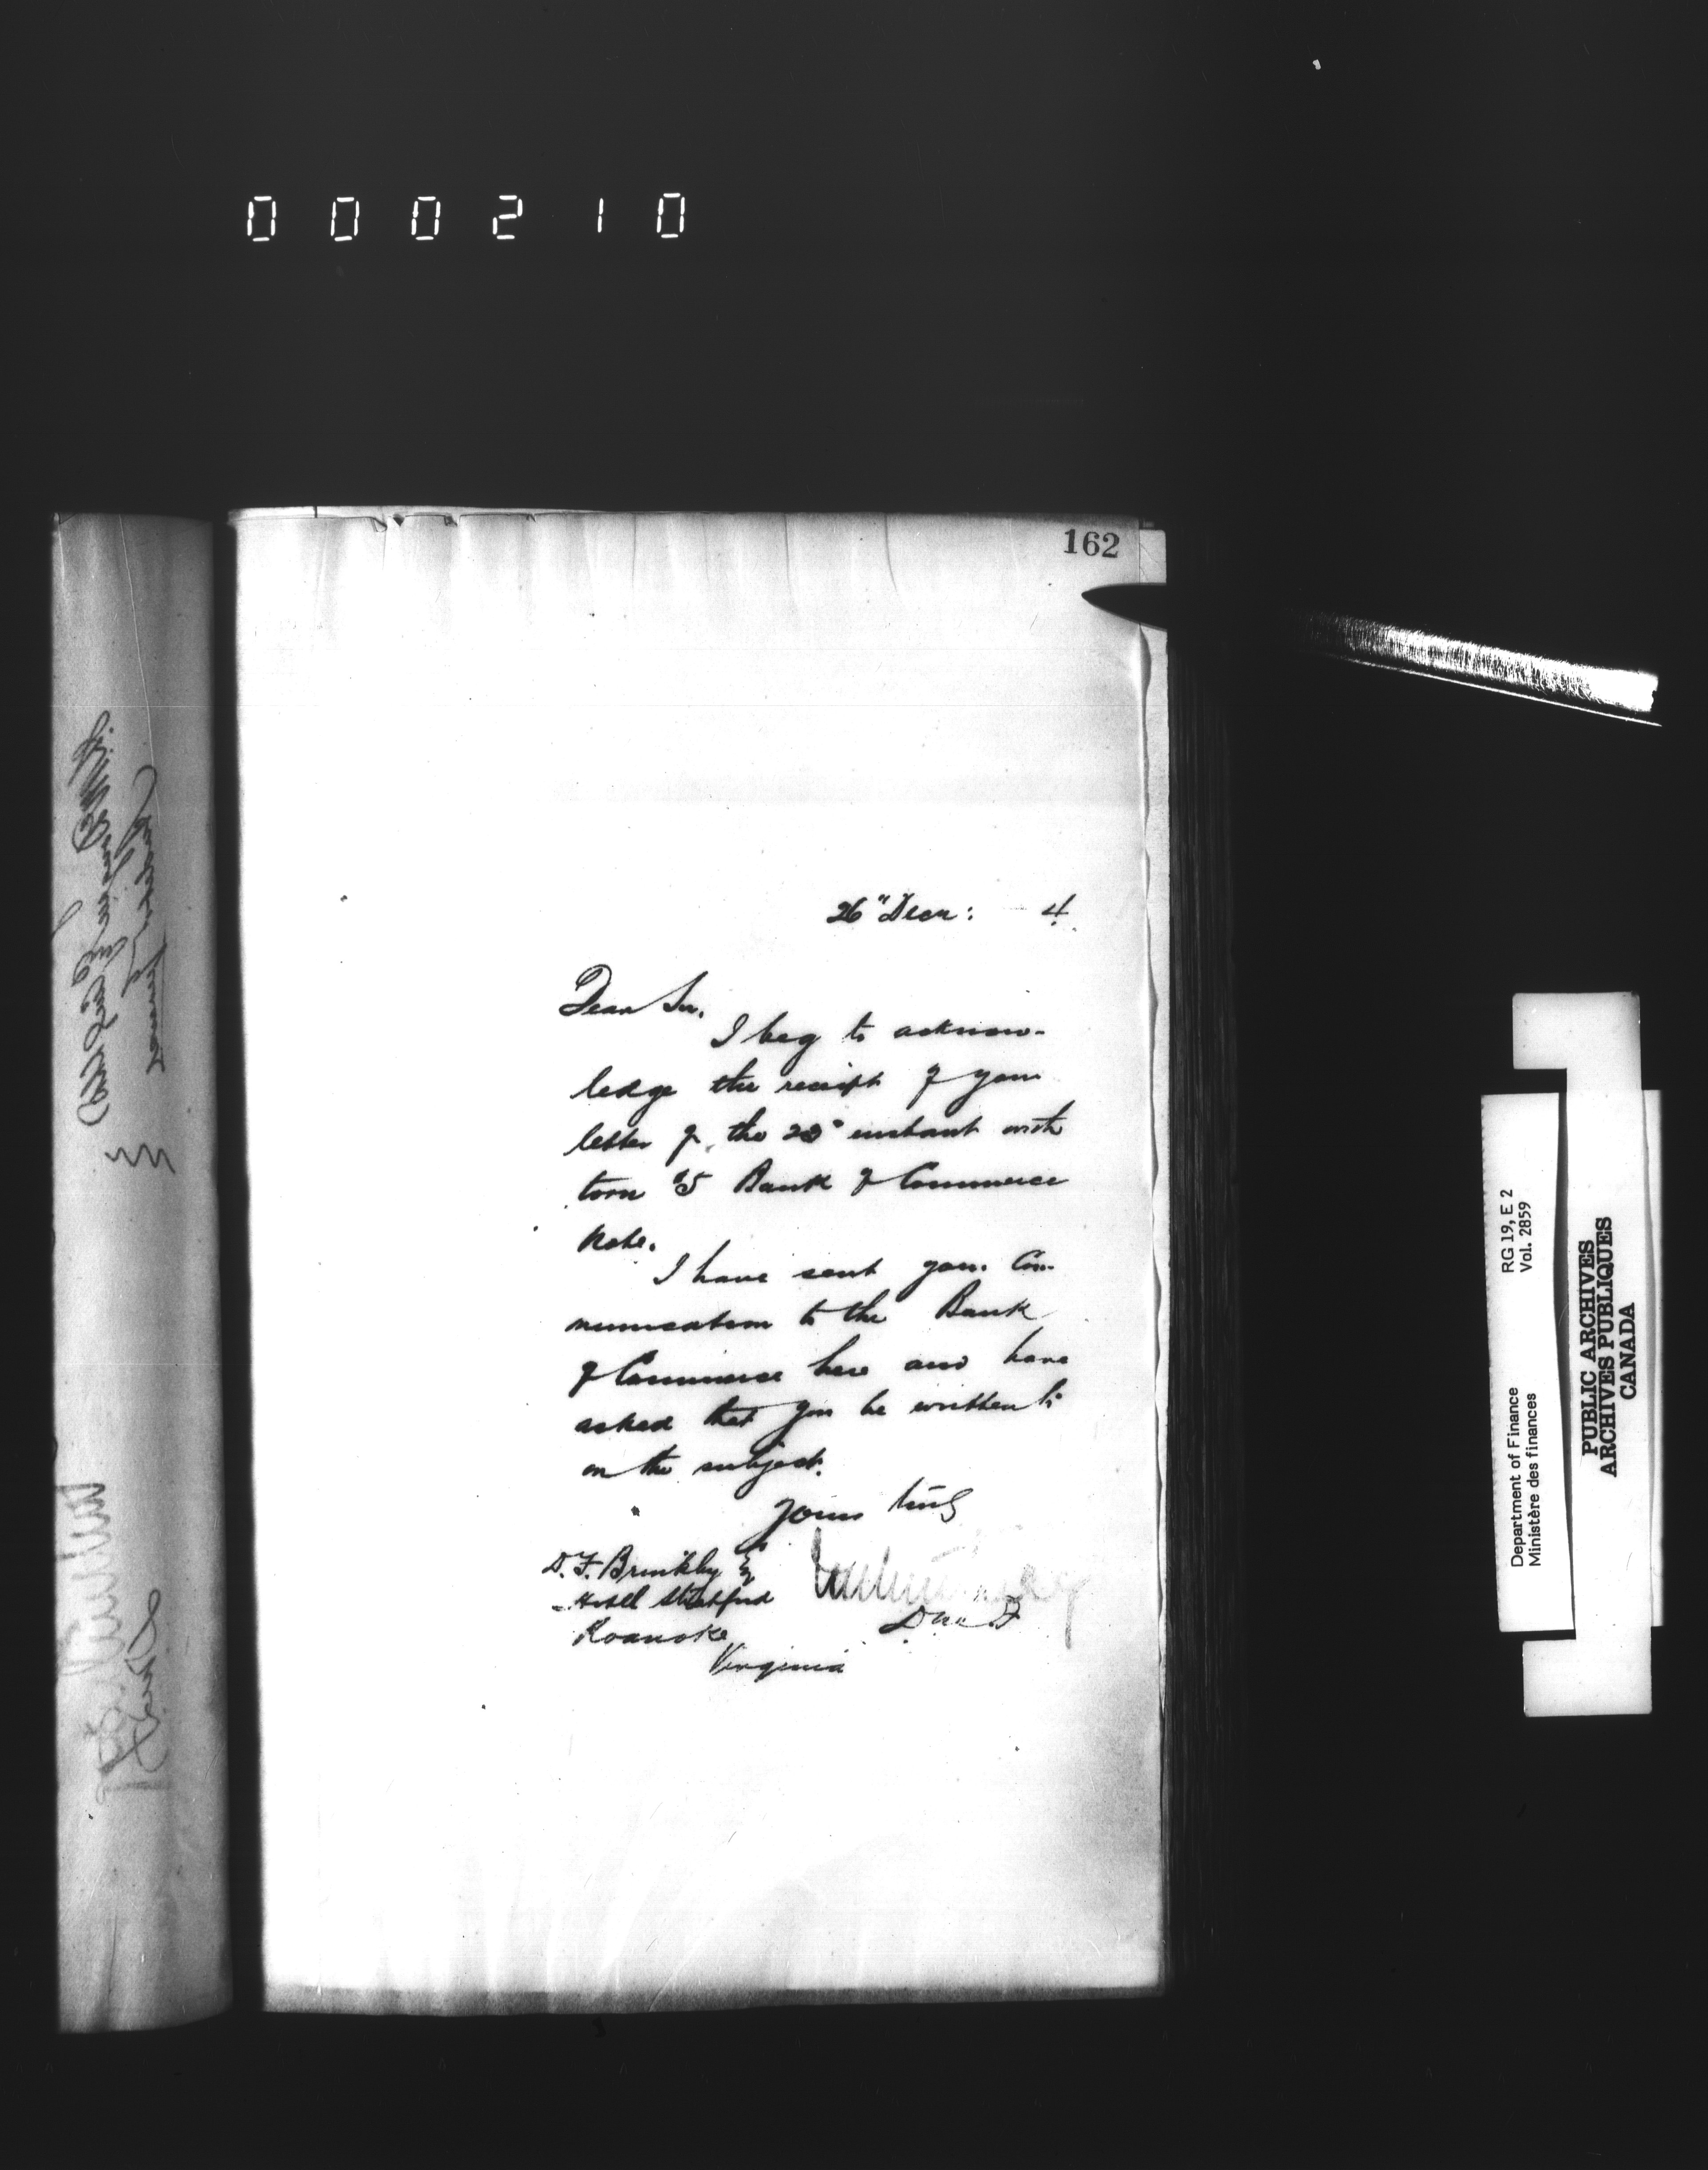 000210
162
26" Decr: 4
Dear Sir.
I beg to acknow-
ledge the receipt of your
letter of the 23" instant with
torn $5 Bank of Commerce
Note.
I have sent your Com-
munication to the Bank
of Commerce here and have
asked that you be written to
on the subject.
Yours truly
D. F. Brinkley Esq
Hotel Stratford
Roanoke
Virginia
RG 19, E 2
Vol. 2859
Department of Finance
Ministère des finances
PUBLIC ARCHIVES
ARCHIVES PUBLIQUES
CANADA